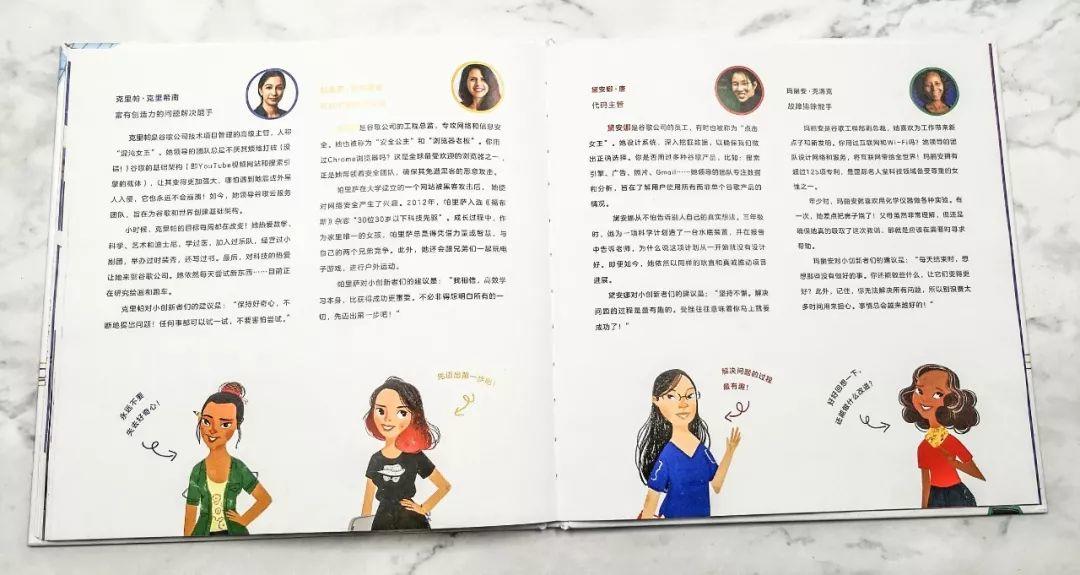 克里帕·克里希南
富有创造力的问题解决能手
克里帕是谷歌公司技术项目管理的高级主管，人称
“混沌女王”。她领导的团队总是不厌其烦地打破（没
错！）谷歌的基础架构（即YouTube视频网站和搜索引
擎的载体），让其变得更加强大，哪怕遇到地震或外星
人入侵，它也永远不会崩溃！如今，她领导谷歌云服务
团队，旨在为谷歌和世界创建基础架构。
小时候，克里帕的目标每周都在改变！她热爱数学、
科学、艺术和迪士尼，学过医，加入过乐队，经营过小
剧团，举办过时装秀，还写过书。最后，对科技的热爱
让她来到谷歌公司。她依然每天尝试新东西……目前正
在研究绘画和跑车。
克里帕对小创新者们的建议是：“保持好奇心，不
断地提出问题！任何事都可以试一试，不要害怕尝试。”
是谷歌公司的工程总监，专攻网络和信息安
全。她也被称为“安全公主”和“浏览器老板”。你用
过Chrome浏览器吗？这是全球最受欢迎的浏览器之一，
正是她带领着安全团队，确保其免遭黑客的恶意攻击。
帕里萨在大学成立的一个网站被黑客攻击后，她便
对网络安全产生了兴趣。2012年，帕里萨入选《福布
斯》杂志“30位30岁以下科技先服”。成长过程中，作
为家里唯一的女孩，帕里萨总是得凭借力量或智慧，与
自己的两个兄弟竞争。此外，她还会跟兄弟们一起玩电
子游戏，进行户外运动。
帕里萨对小创新者们的建议是：“我相信，高效学
习本身，比获得成功更重要。不必非得想明白所有的一
切，先迈出第一步吧！”
黛安娜·唐
代码主管
黛安娜是谷歌公司的员工，有时也被称为“点击
女王”。她设计系统，深入挖掘数据，以确保我们做
出正确选择。你是否用过多种谷歌产品，比如：搜索
引擎、广告、照片、Gmail……她领导的团队专注数据
和分析，旨在了解用户使用所有而非单个谷歌产品的
情况。
黛安娜从不怕告诉别人自己的真实想法。三年级
时，她为一项科学计划造了一台水培装置，并在报告
中告诉老师，为什么说这项计划从一开始就没有设计
好。即便如今，她依然以同样的坦直和真诚推动项目
进展。
黛安娜对小创新者们的建议是：“坚持不懈。解决
问题的过程是最有趣的。受挫往往意味着你马上就要
成功了！”
玛丽安·克洛克
故障排除能手
玛丽安是谷歌工程部副总裁，她喜欢为工作带来新
点子和新发明。你用过互联网和Wi-Fi吗？她领导的团
队设计网络和服务，将互联网带给全世界！玛丽安拥有
超过125项专利，是国际名人堂科技领域备受尊重的女
性之一。
年少时，玛丽安就喜欢用化学仪器做各种实验。有
一次，她差点把房子烧了！父母虽然非常理解，但还是
确保她真的吸取了这次教训，那就是应该在需要时寻求
帮助。
玛丽安对小创新者们的建议是：“每天结束时，想
想那些没有做好的事。你还能做些什么，让它们变得更
好？此外，记住，你无法解决所有问题，所以别浪费太
多时间用来担心。事情总会越来越好的！”
永远不要
失去好奇心！
先迈出第一步吧！
解决问题的过程
最有趣！
好好回想一下，
还能做什么改进？